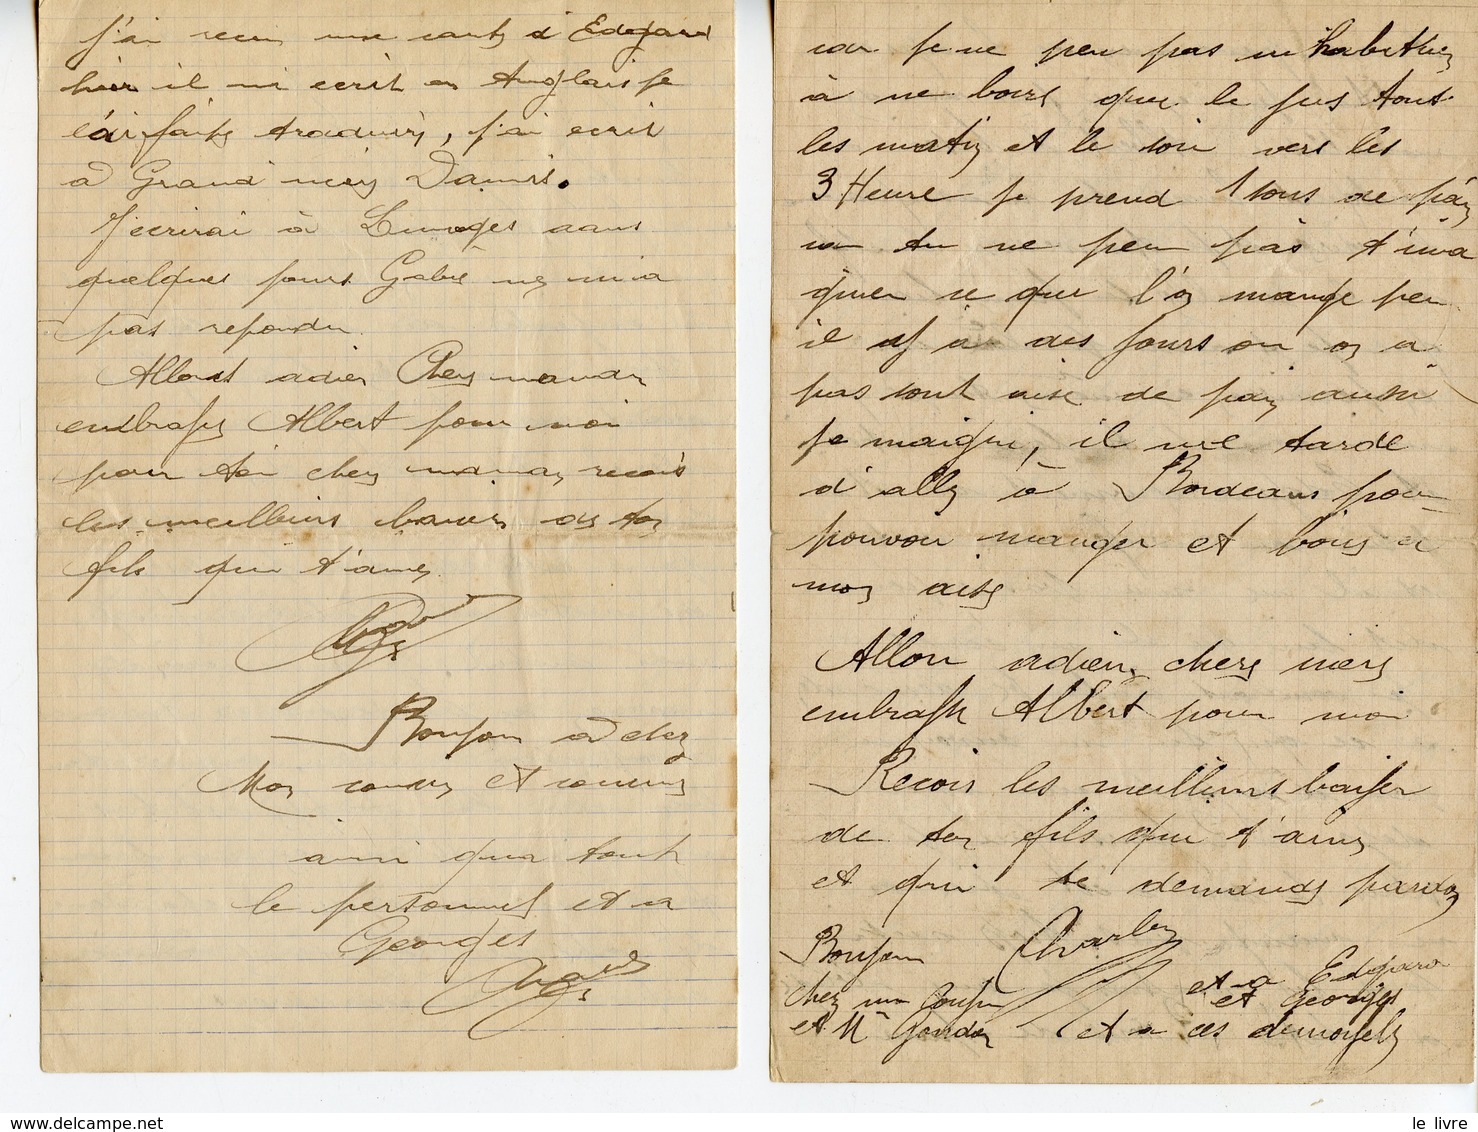 J'ai recu une carte d'Edgard
hier il m'ecrit en Anglais je
l'ai faite traduire, j'ai ecrit
à Grand mère Damis.
J'ecrirai à Limoges dans
quelques jours. Gabie ne m'a
pas repondu.
Allons adieu Chere maman
embrasse Albert pour moi
pour toi chere maman recois
les meilleurs baisers de ton
fils qui t'aime
Bonjour à chez
Mon cousin et cousine
ainsi qua tout
le personnel et a
Georges
car je ne peu pas m'habituer
à ne boire que le jus tout
les matin et le soir vers les
3 Heure je prend 1 sous de pain
car tu ne peu pas t'ima
giner ce que l'on mange peu
il y a des jours on on a
pas tout aise de pain aussi
je maigri, il me tarde
d'aller à Bordeaux pour
pouvoir manger et boire a
mon aise
Allon adieu chere mere
embrasse Albert pour moi
Recois les meilleurs baiser
de ton fils qui t'aime
et qui te demande pardon
Charles
Bonjour
chez mon Cousin
et a Edgard
et Georges
et Mr Gourdon et a ces demoiselle
le livre